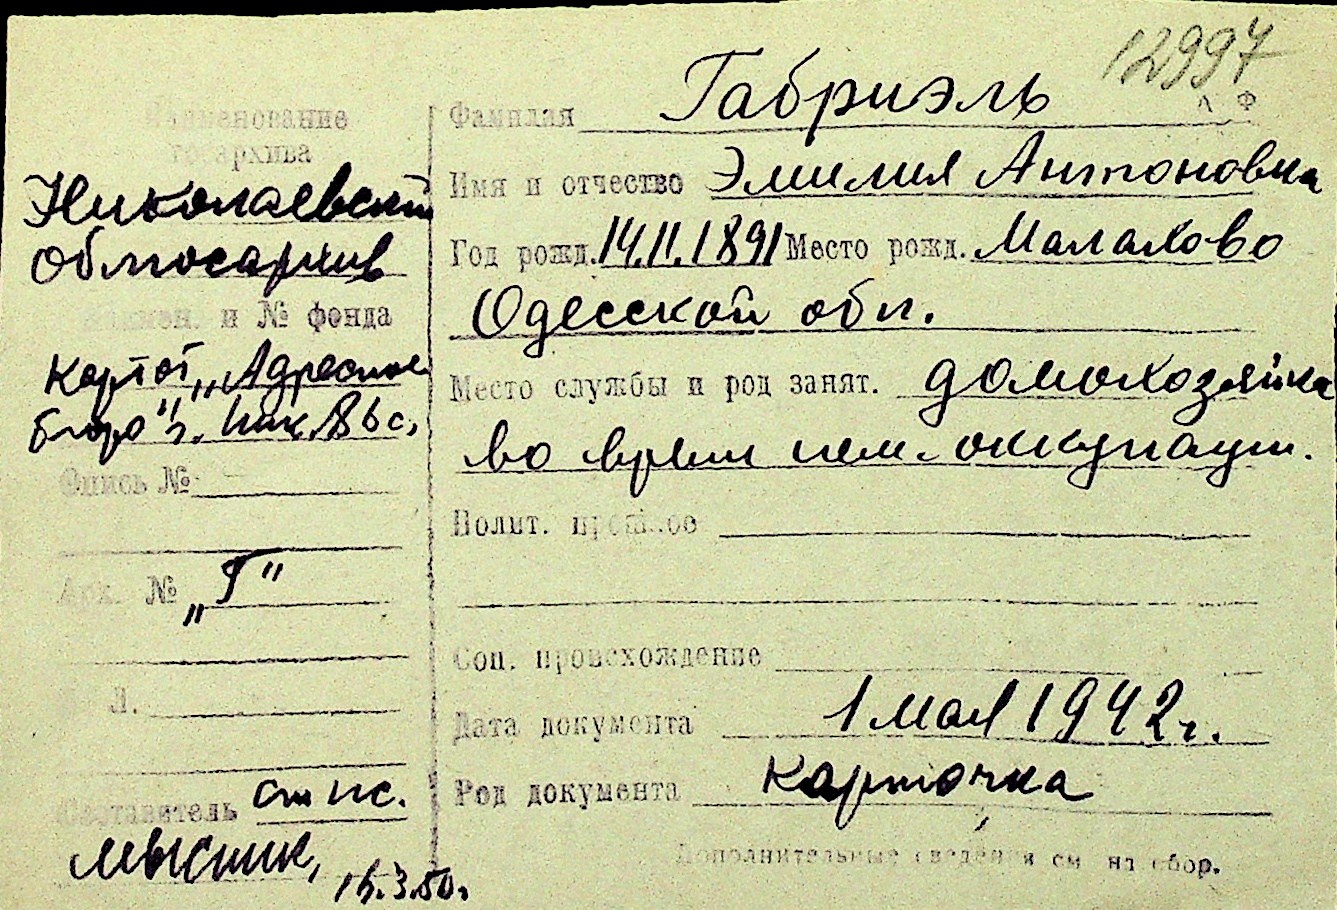 12997
Л Ф
Наименование
госархива
Николаевский
Облгосархив
Наимен. и № фонда
Картот. „Адресное
бюро" г. Ник.
Опись №
Арх. № „Г"
Л.
Составитель ст. пс.
Мысник, 3.50г.
Фамилия Габриэль
Имя и отчество Эмилия Антоновна
Год рожд. 14.11.1891 Место рожд. Малахово
Одесской обл.
Место службы и род занят. домохозяйка
во время нем. оккупации.
Полит. прошлое
Соц. происхождение
Дата документа 1 мая 1942 г.
Род документа карточка
Дополнительные сведения см на обор.